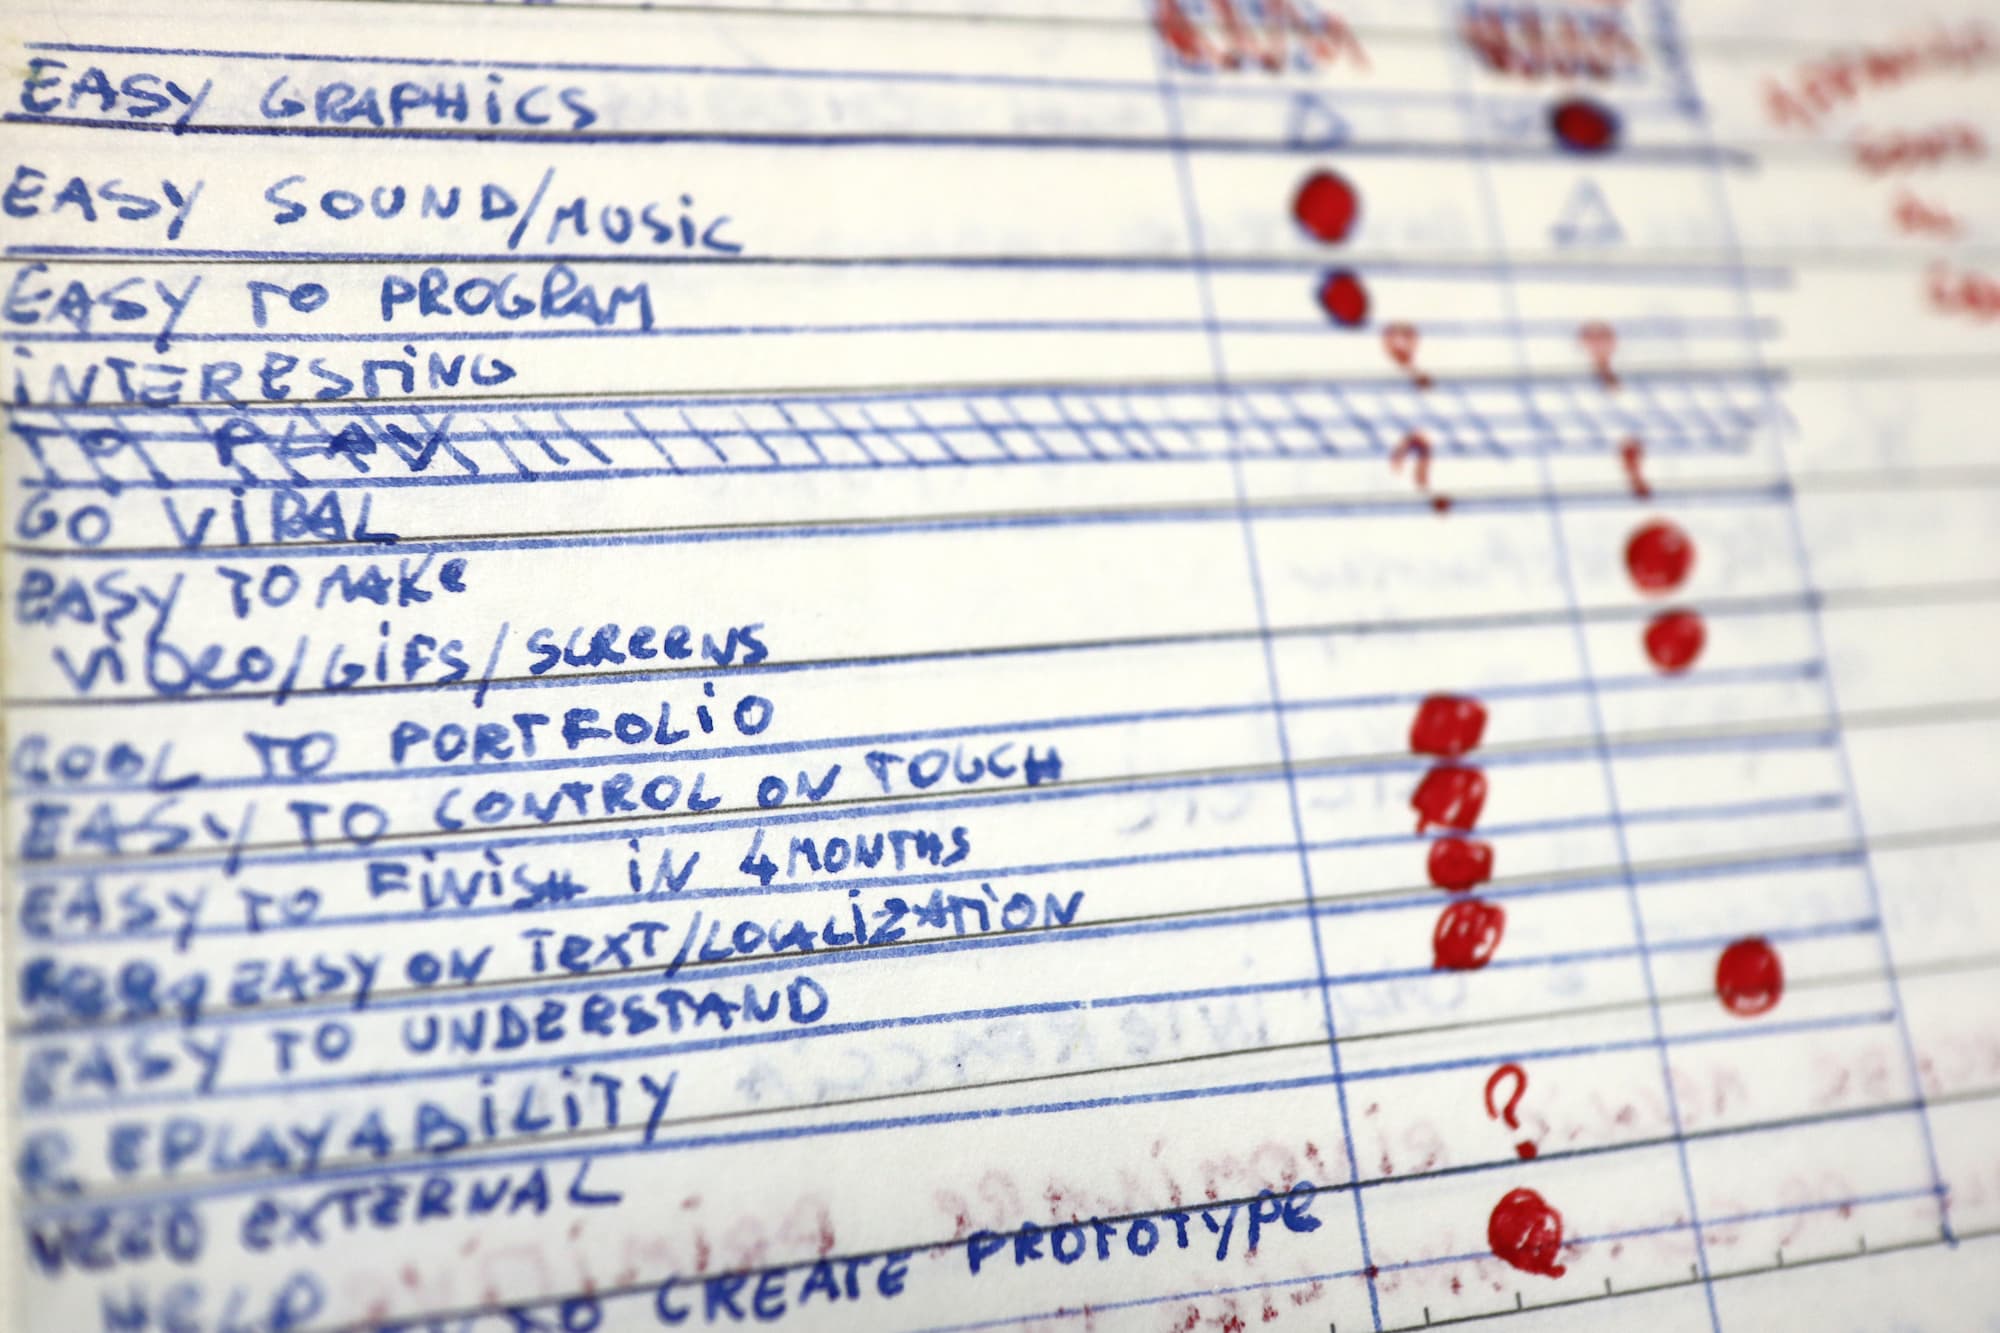 EASY GRAPHICS
EASY SOUND/MUSIC
EASY TO PROGRAM
INTERESTING
? ?
TO PLAY
? ?
GO VIRAL
EASY TO MAKE
VIDEO/GIFS/SCREENS
COOL TO PORTFOLIO
EASY TO CONTROL ON TOUCH
EASY TO FINISH IN 4 MONTHS
EASY ON TEXT/LOCALIZATION
EASY TO UNDERSTAND
REPLAYABILITY
?
NEED EXTERNAL
HELP
TO CREATE PROTOTYPE